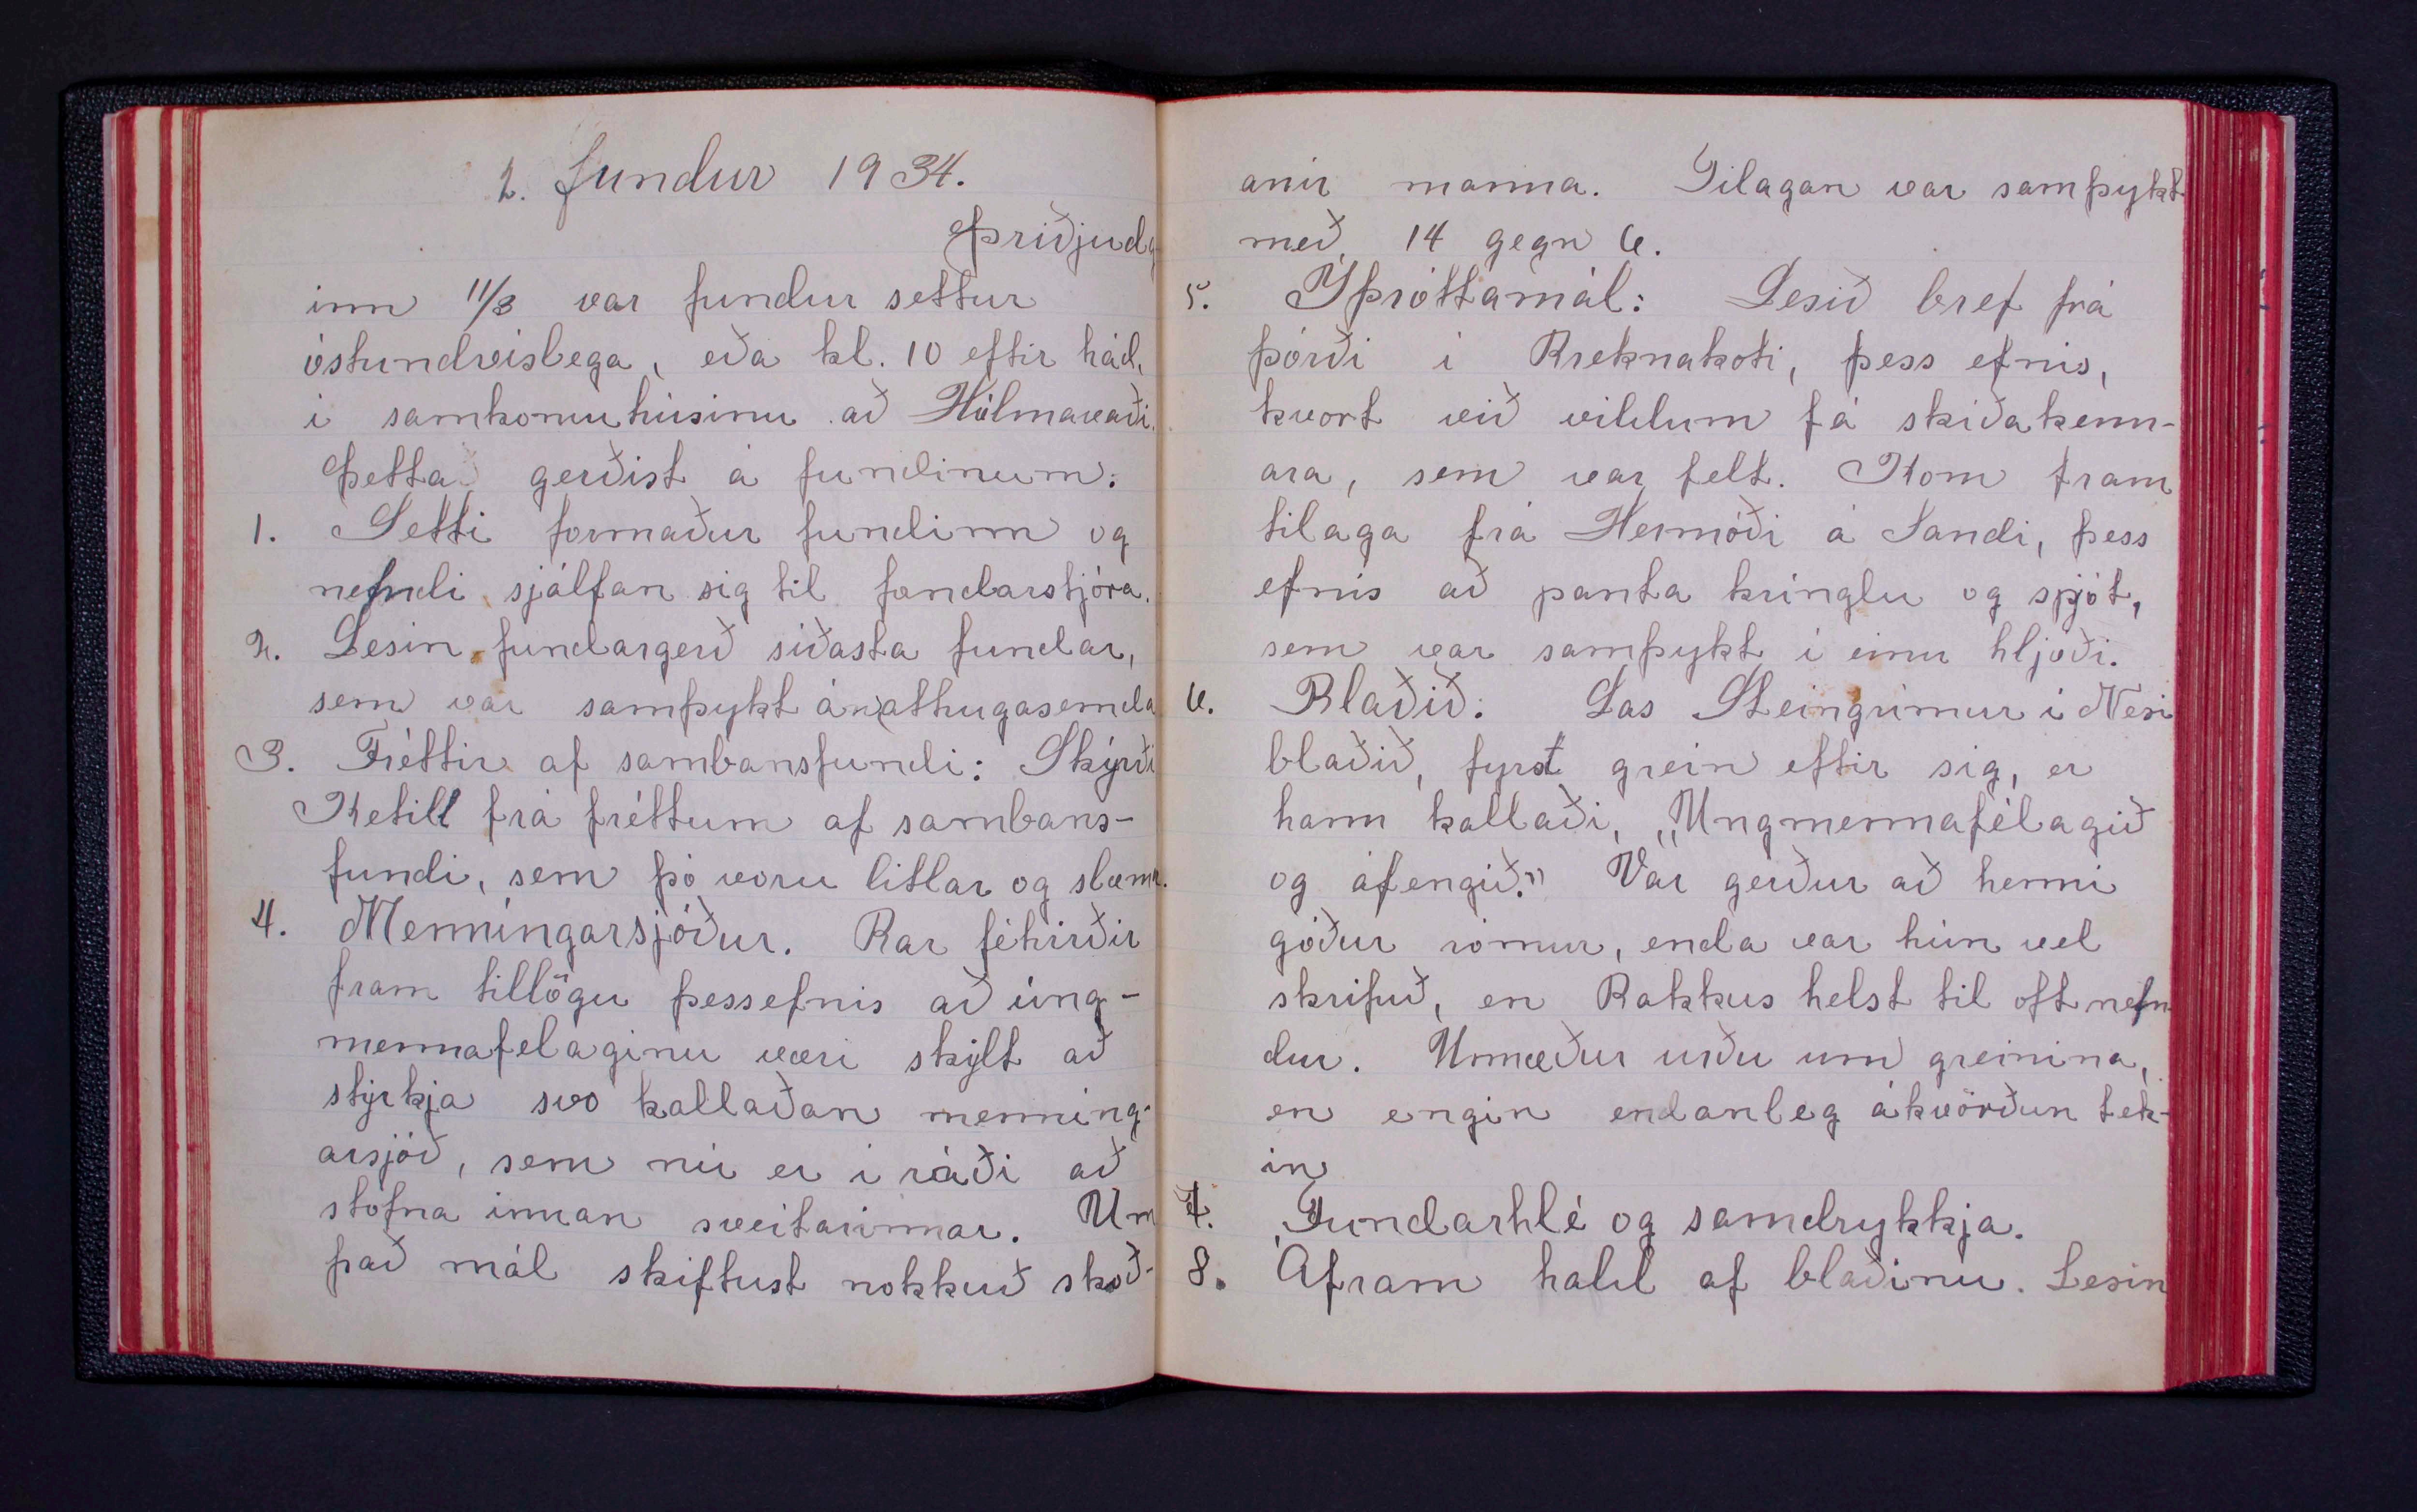 2. fundur 1934.
Þriðjudag
inn 11/3 var fundur settur
óstundvíslega, eða kl. 10 eftir hád.
í samkomuhúsinu að Hólmavaði.
Þetta gerðist á fundinum:
1. Setti formaður fundinn og
nefndi sjálfan sig til fundarstjóra.
2. Lesin fundargerð síðasta fundar,
sem var samþykt án athugasemda
3. Fréttir af sambansfundi: Skýrði
Ketill frá fréttum af sambans-
fundi, sem þó voru litlar og slæmr.
4. Menníngarsjóður. Bar féhirðir
fram tillögu þessefnis að úng-
mennafelaginu væri skýlt að
stýrkja svo kallaðan menníng-
arsjóð, sem nú er í ráði að
stofna innan sveitarinnar. Um
það mál skiftust nokkuð skoð-
anir manna. Tilagan var samþykt
með 14 gegn 6.
5. Íþróttamál: Lesið bref frá
Þórði í Breknakoti, þess efnis,
kvort við vildum fá skíðakenn-
ara, sem var felt. Kom fram
tilaga frá Hermóði á Sandi, þess
efnis að panta krínglu og spjót,
sem var samþykt í einu hljóði.
6. Blaðið: Las Steingrímur í Nesi
blaðið, fyrst grein eftir sig, er
hann kallaði, „Ungmennafélagið
og áfengið." Var gerður að henni
góður rómur, enda var hún vel
skrifuð, en Bakkus helst til oft nefn
dur. Umræður urðu um greinina,
en engin endanleg ákvörðun tek-
in
7. Fundarhlé og samdrykkja.
8. Afram hald af blaðinu. Lesin